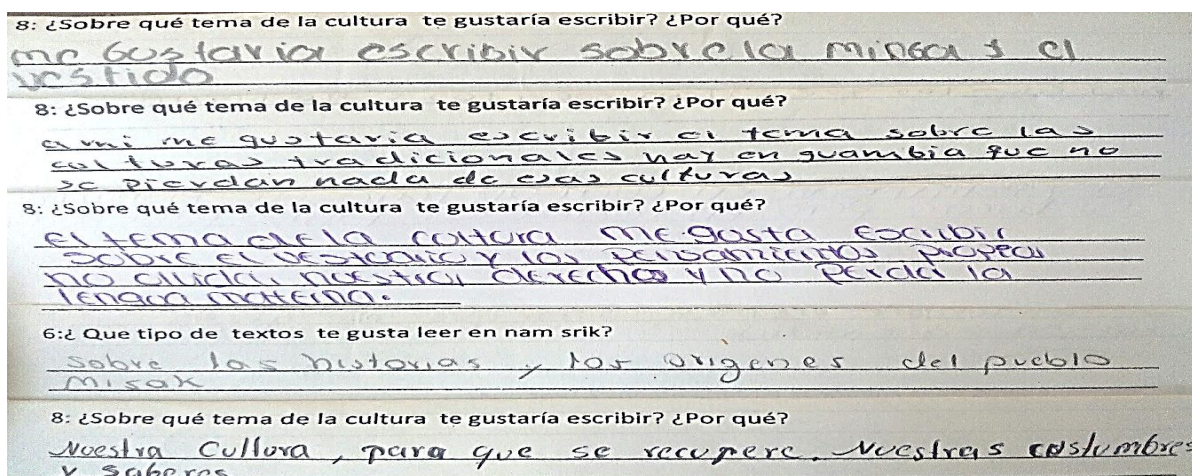 8: ¿Sobre qué tema de la cultura te gustaría escribir? ¿Por qué?
me Gustaria escribir sobre la minga y el
vestido
8: ¿Sobre qué tema de la cultura te gustaría escribir? ¿Por qué?
a mi me gustaria escribir el tema sobre las
culturas tradicionales hay en guambia que no
se pierdan nada de esas culturas
8: ¿Sobre qué tema de la cultura te gustaría escribir? ¿Por qué?
el tema de la coltura me gusta escribir
sobre el vestuario y los pensamientos
no nuestra derechos y no perda la
lengua materna.
6:¿ Que tipo de textos te gusta leer en nam srik?
sobre las historias y los origenes del pueblo
misak
8: ¿Sobre qué tema de la cultura te gustaría escribir? ¿Por qué?
Nuestra Cultura, para que se recupere. Nuestras costumbres
y saberes